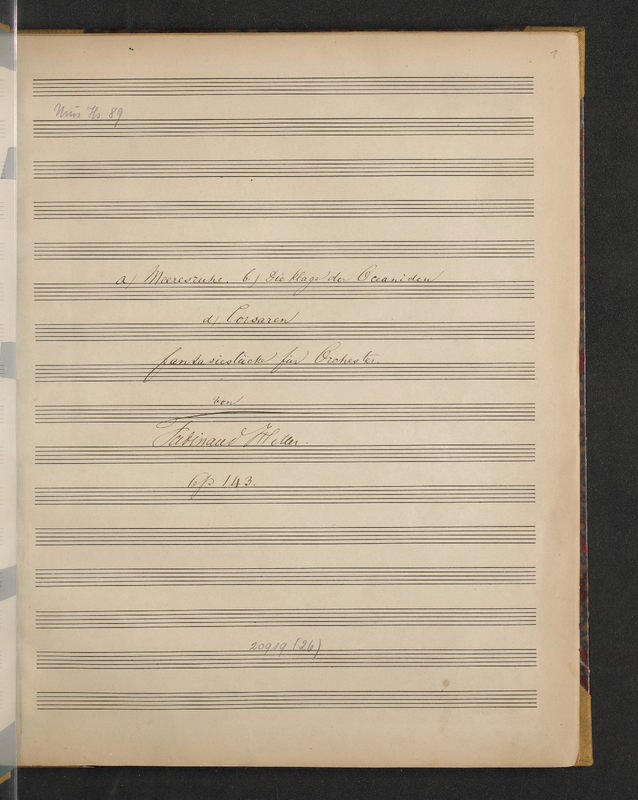 1
Mus Hs 89
a) Meeresruhe. b) Die Klage der Oceaniden
d) Corsaren
Fantasiestücke für Orchester.
von
Ferdinand Hiller.
Op 143.
20919 (26)